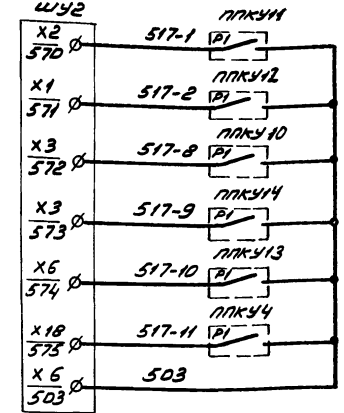 ШУ2
X2
570
517-1
ППКУ11
P1
X1
571
517-2
ППКУ12
P1
X3
572
517-8
ППКУ10
P1
X3
573
517-9
ППКУ14
P1
X6
574
517-10
ППКУ13
P1
X18
575
517-11
ППКУ4
P1
X6
503
503